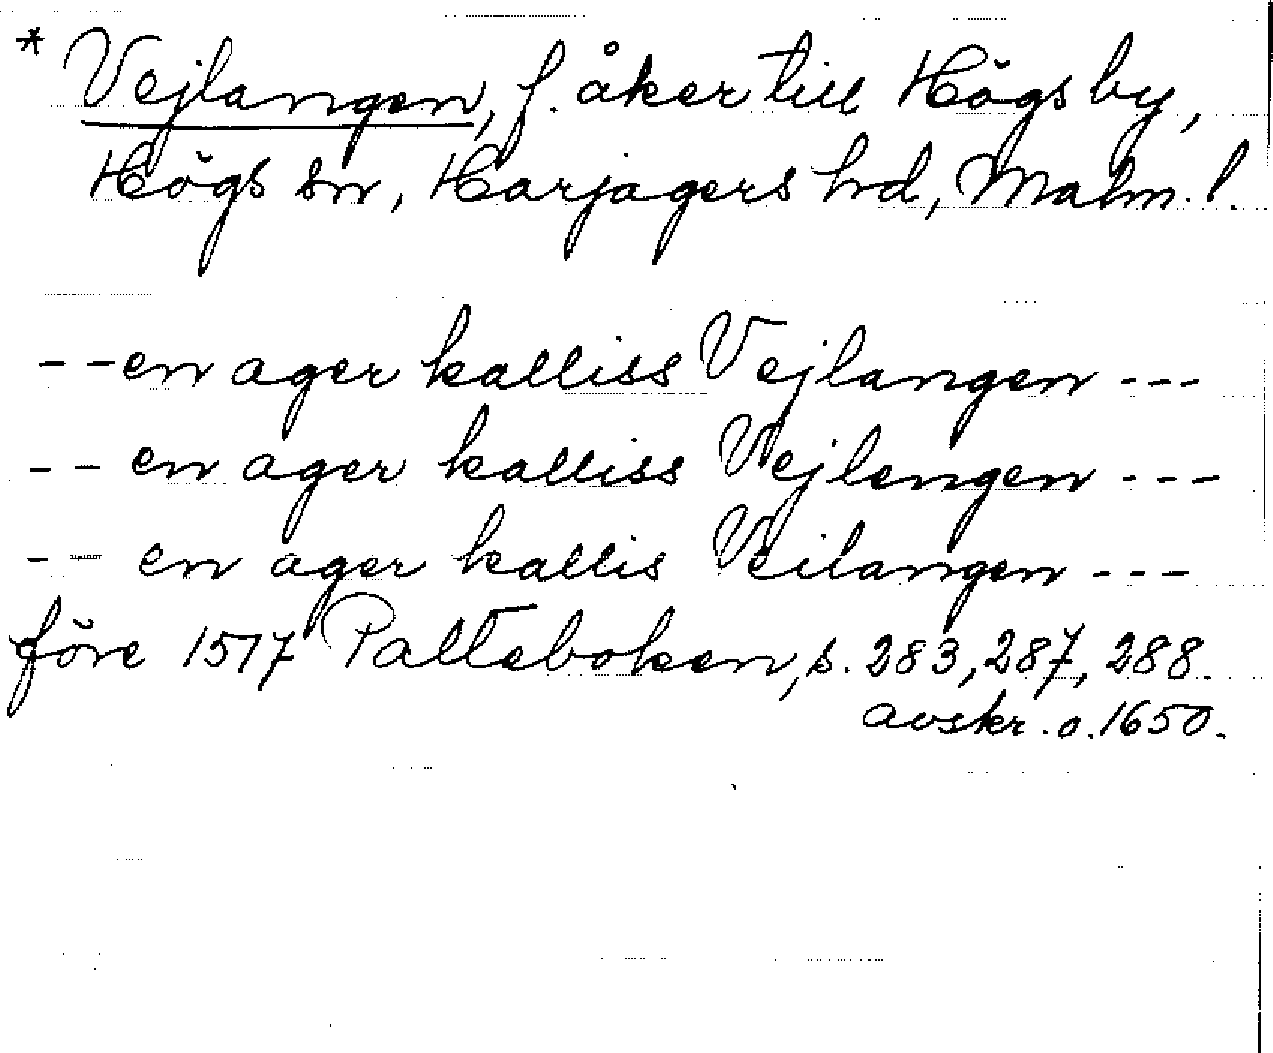 * Vejlangen, f. åker till Högs by,
Högs sn, Harjagers hd, Malm. l.
- - en ager kalliss Vejlangen - - -
- - en ager kalliss Vejlengen - - -
- - en ager kallis Veilangen - - -
före 1517 Palteboken, s. 283, 287, 288.
avskr. o. 1650.